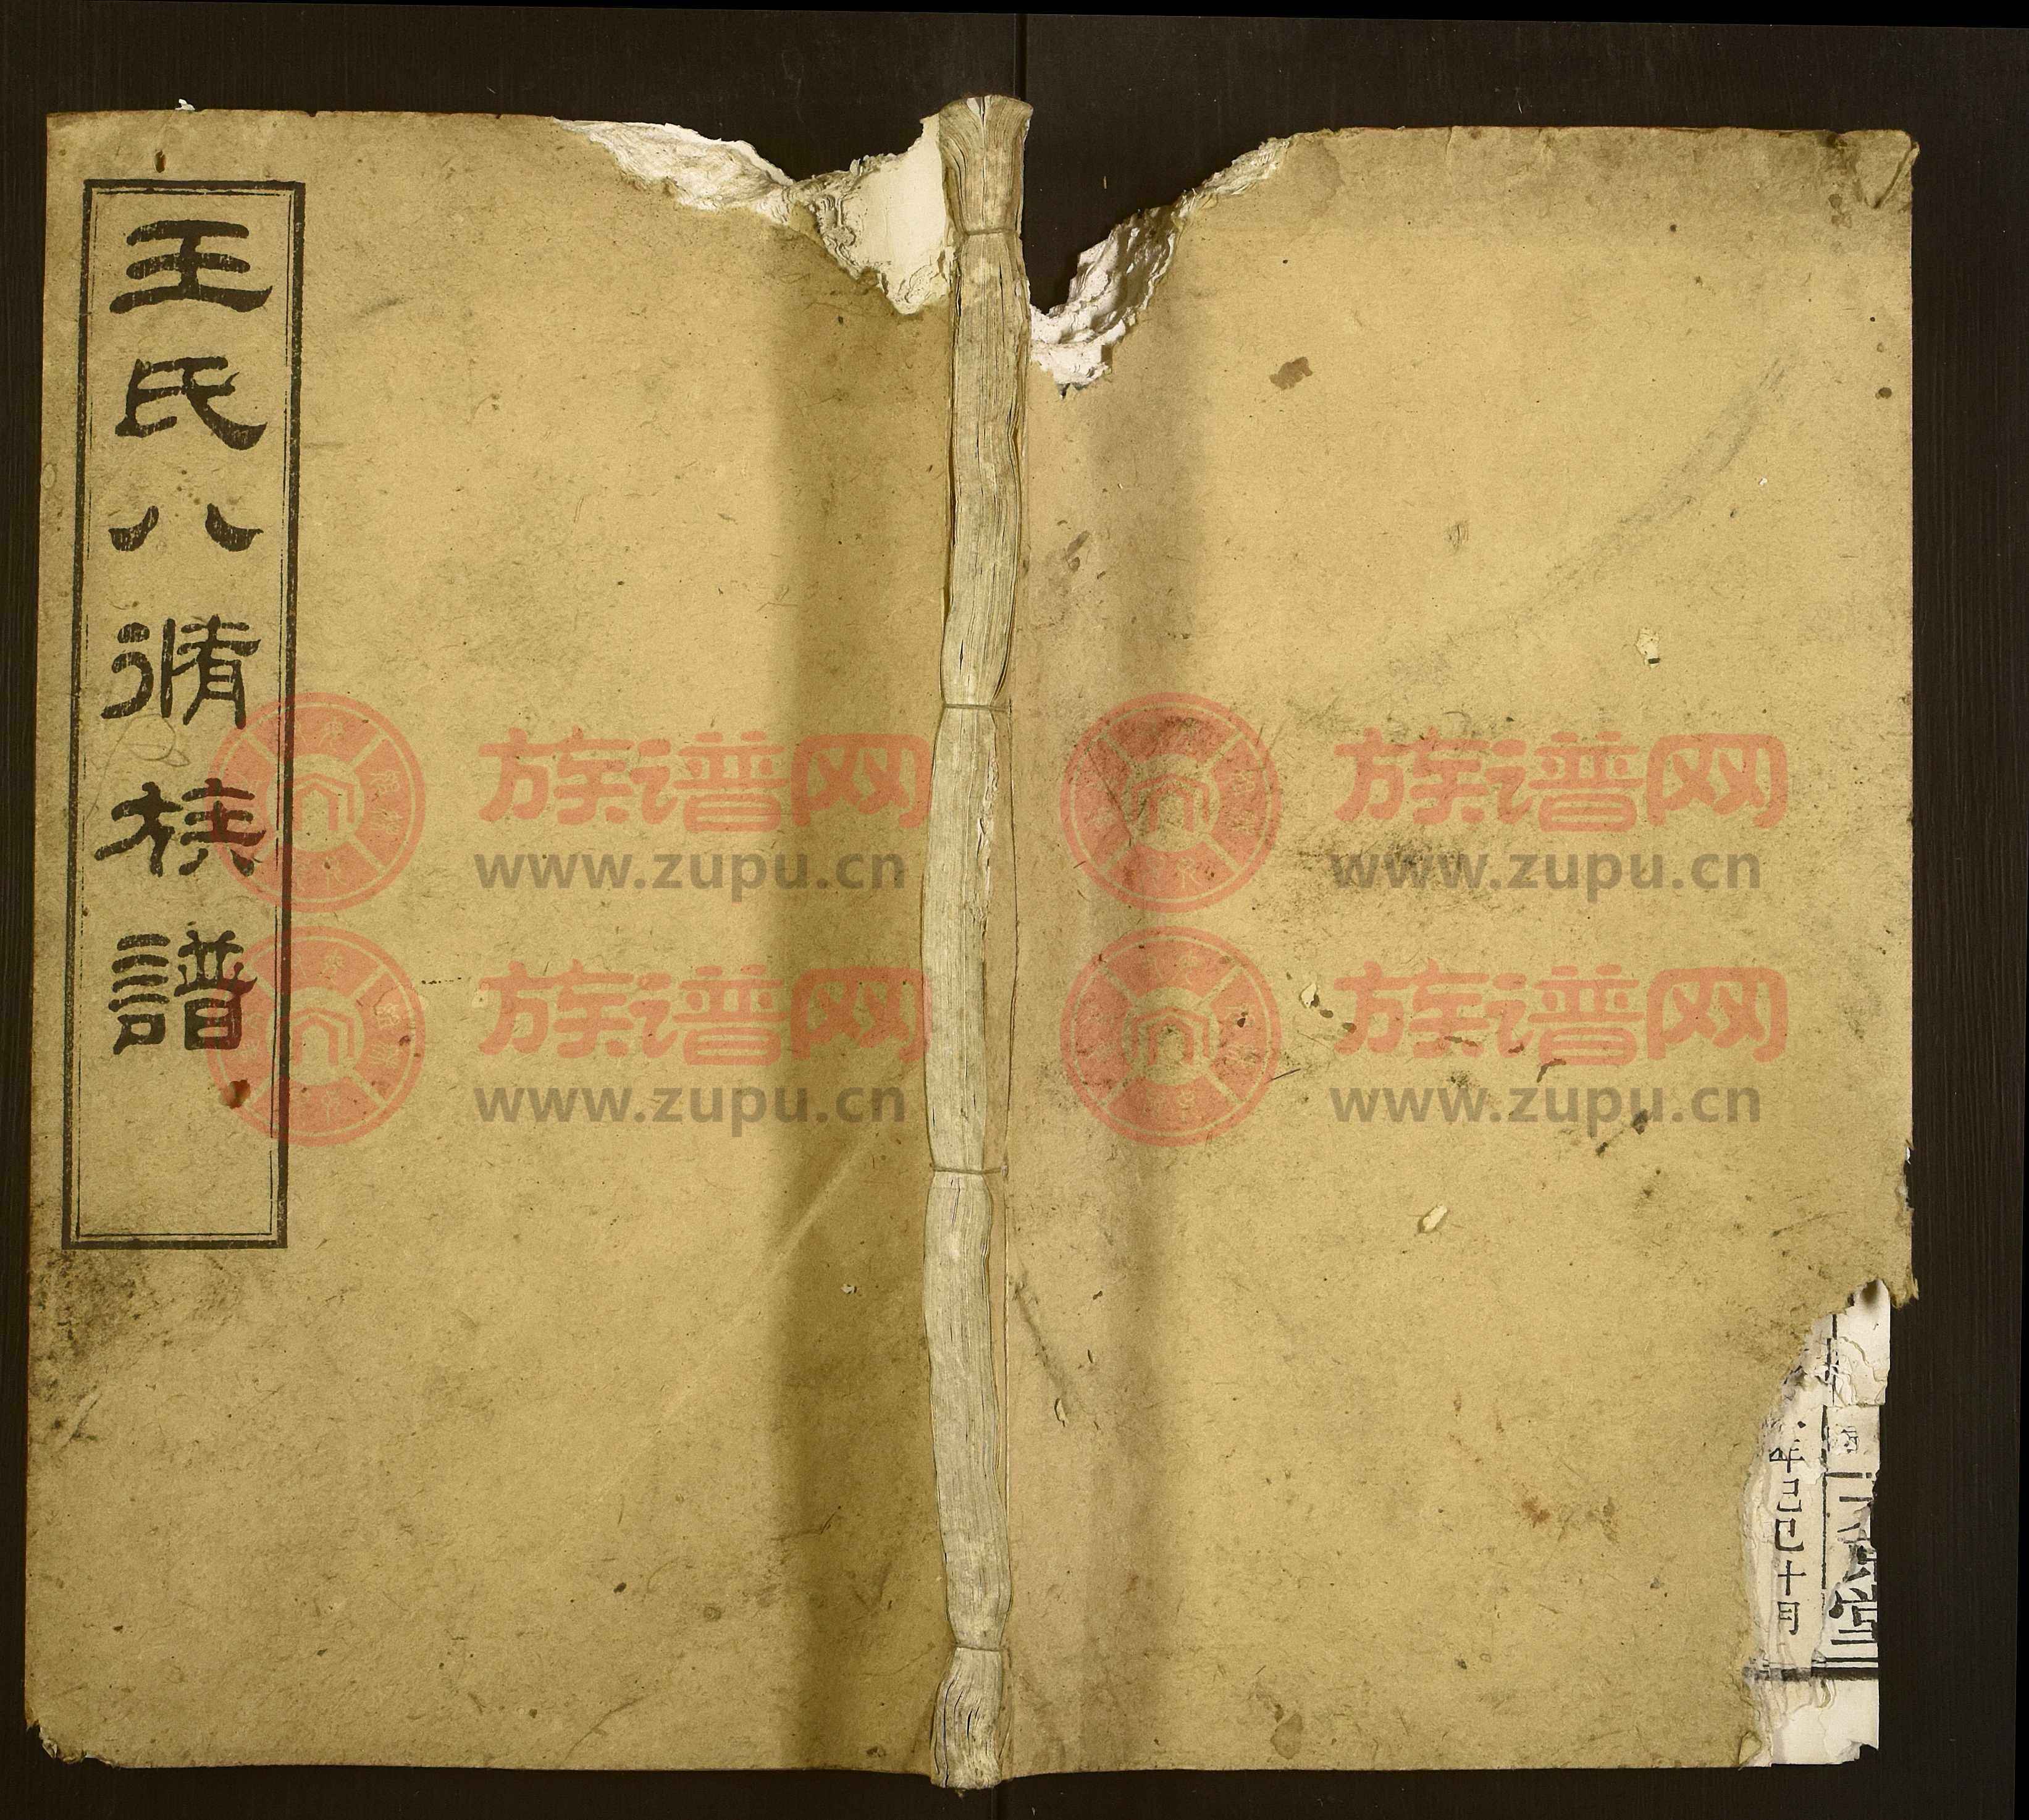 王氏八脩族譜
年己巳十月
族谱网
www.zupu.cn
族谱网
www.zupu.cn
族谱网
www.zupu.cn
族谱网
www.zupu.cn